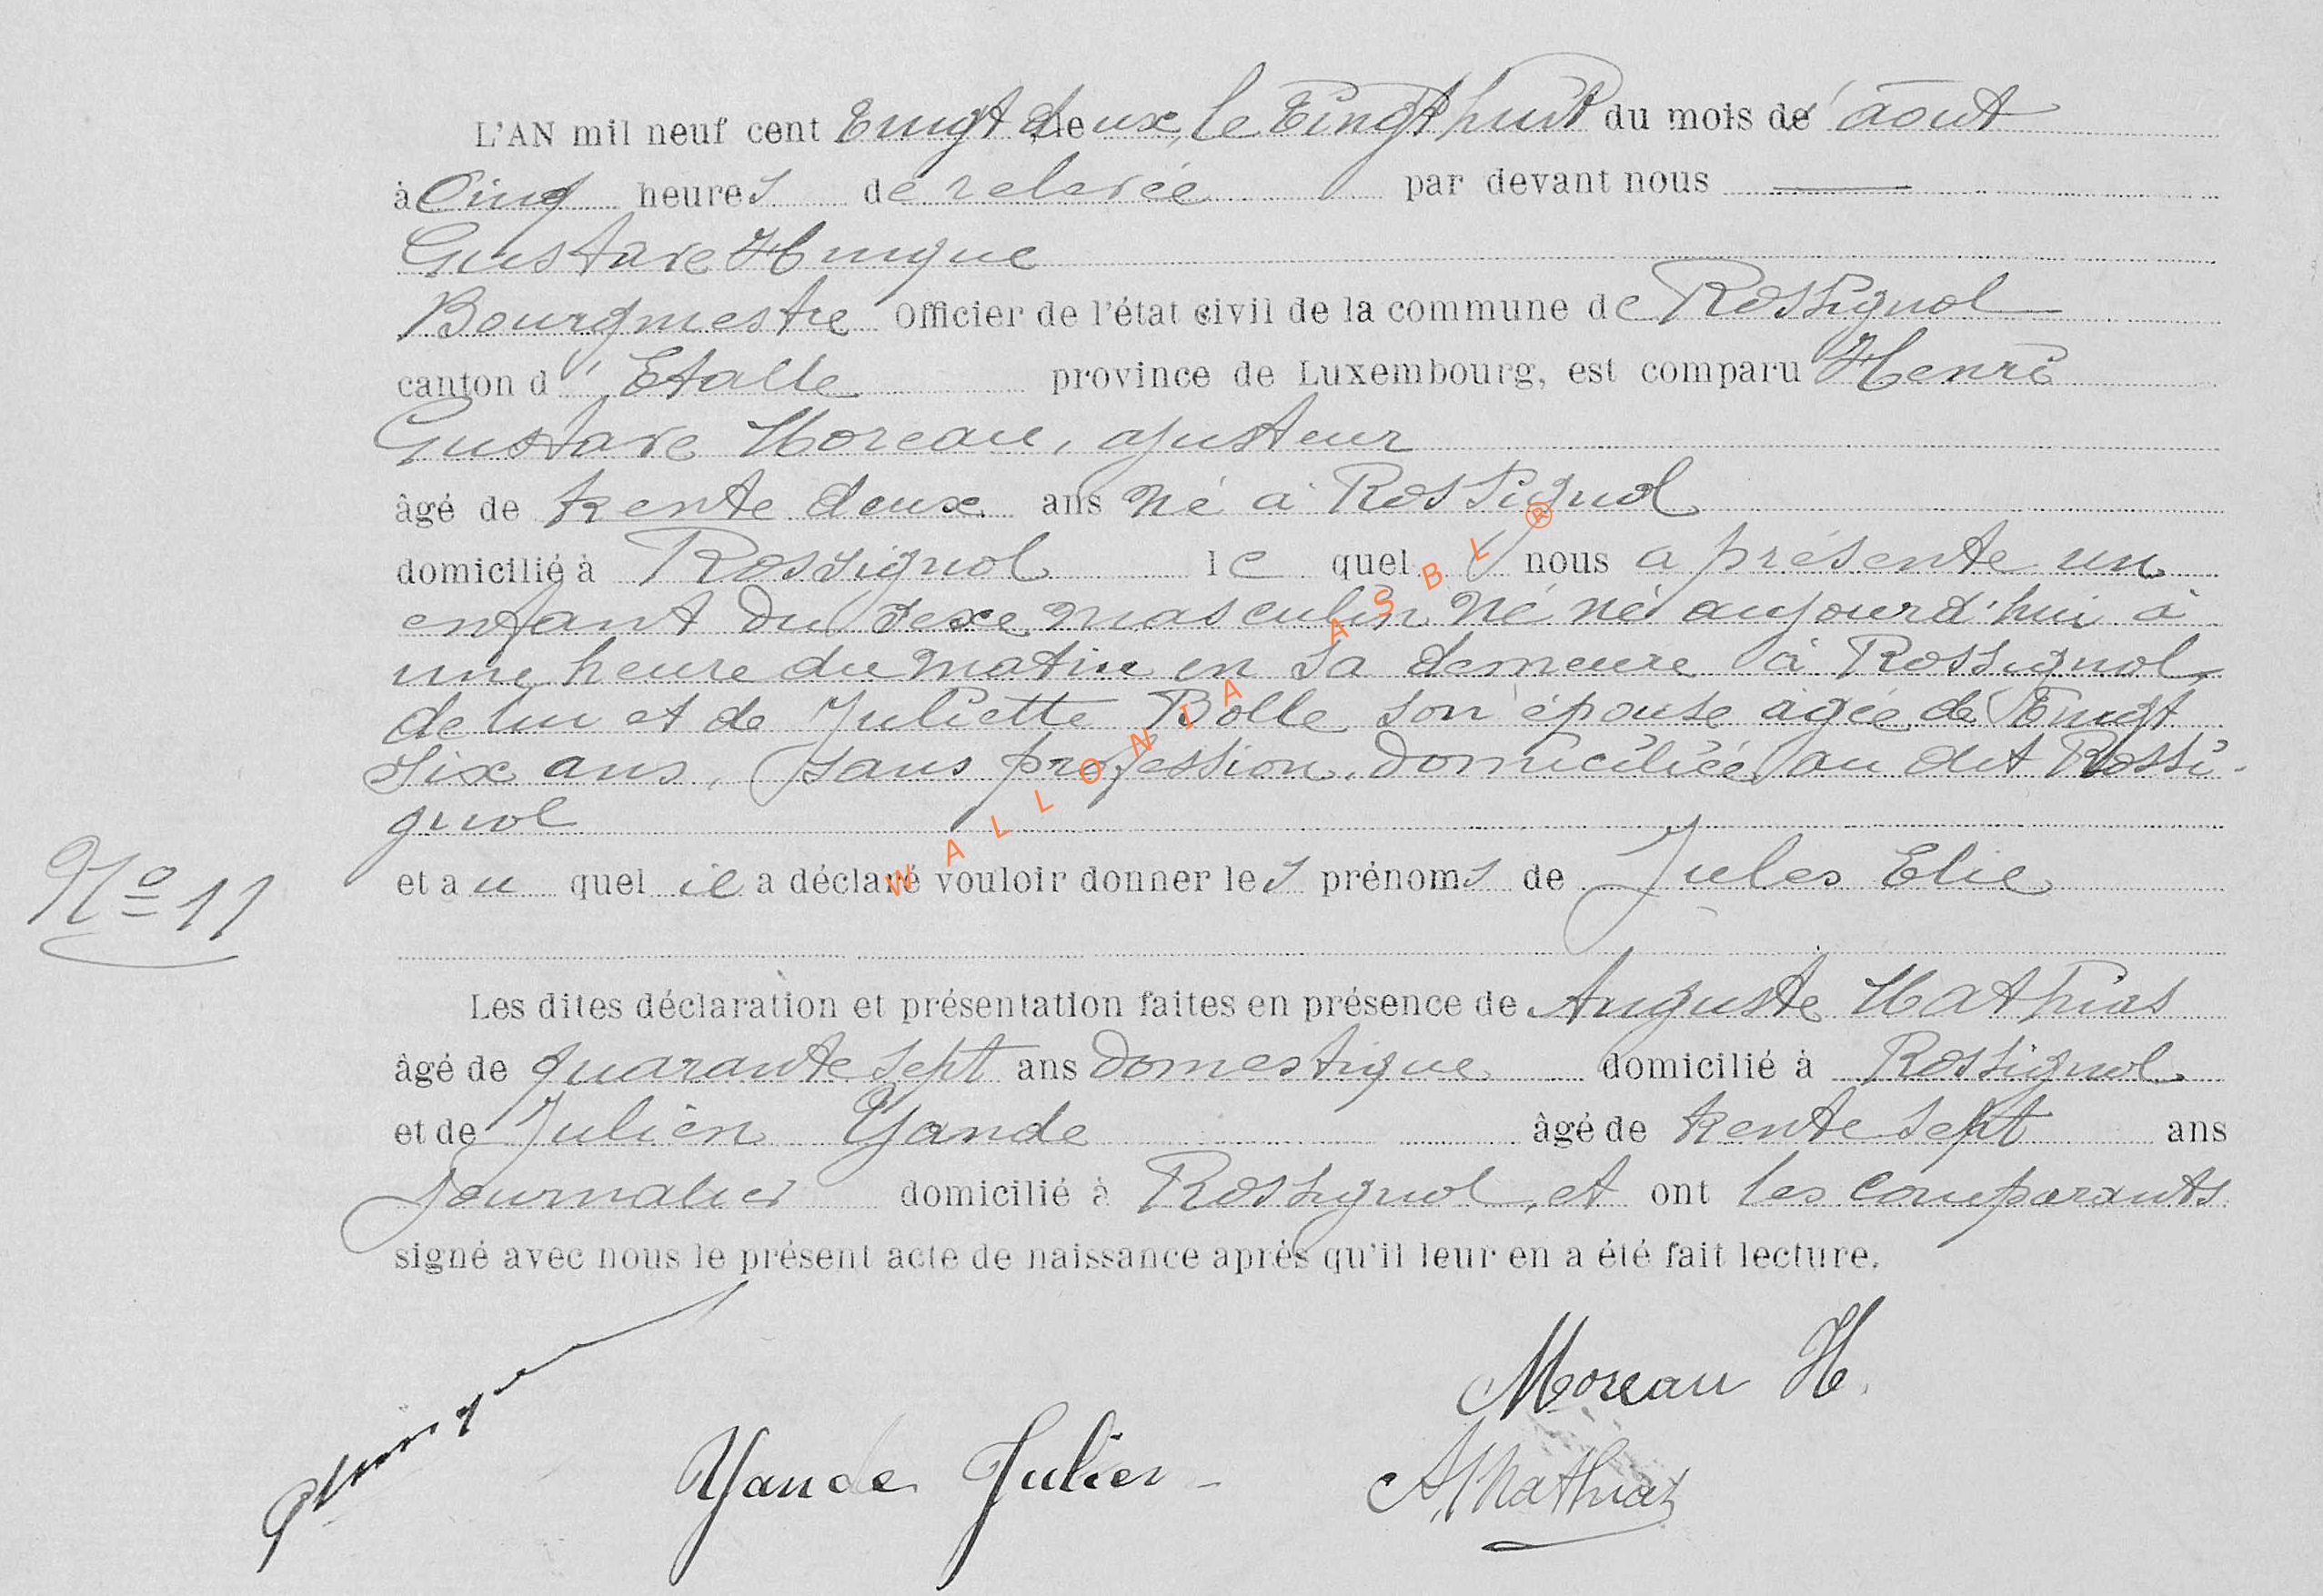 L'AN mil neuf cent vingt deux, le vingt huit du mois d' août
à Cinq heures de relevée par devant nous
Gustave Hurique
Bourgmestre Officier de l'état civil de la commune de Rossignol
canton d' Etalle province de Luxembourg, est comparu Henri
Gustave Moreau, ajusteur
âgé de trente deux ans né à Rossignol
domicilié à Rossignol le quel nous a présenté un
enfant du sexe masculin né né aujourd'hui à
une heure du matin en sa demeure à Rossignol
de lui et de Juliette Bolle son épouse agée de vingt
six ans, sans profession, domiciliée au dit Rossi-
gnol
No 11
et au quel il a déclaré vouloir donner les prénoms de Jules Elie
Les dites déclaration et présentation faites en présence de Auguste Mathias
âgé de quarante sept ans domestique domicilié à Rossignol
et de Julien Yande âgé de trente sept ans
journalier domicilié à Rossignol, et ont les comparants
signé avec nous le présent acte de naissance après qu'il leur en a été fait lecture.
Moreau H.
Yande Julien
A. Mathias
WALLONIA ASBL ®